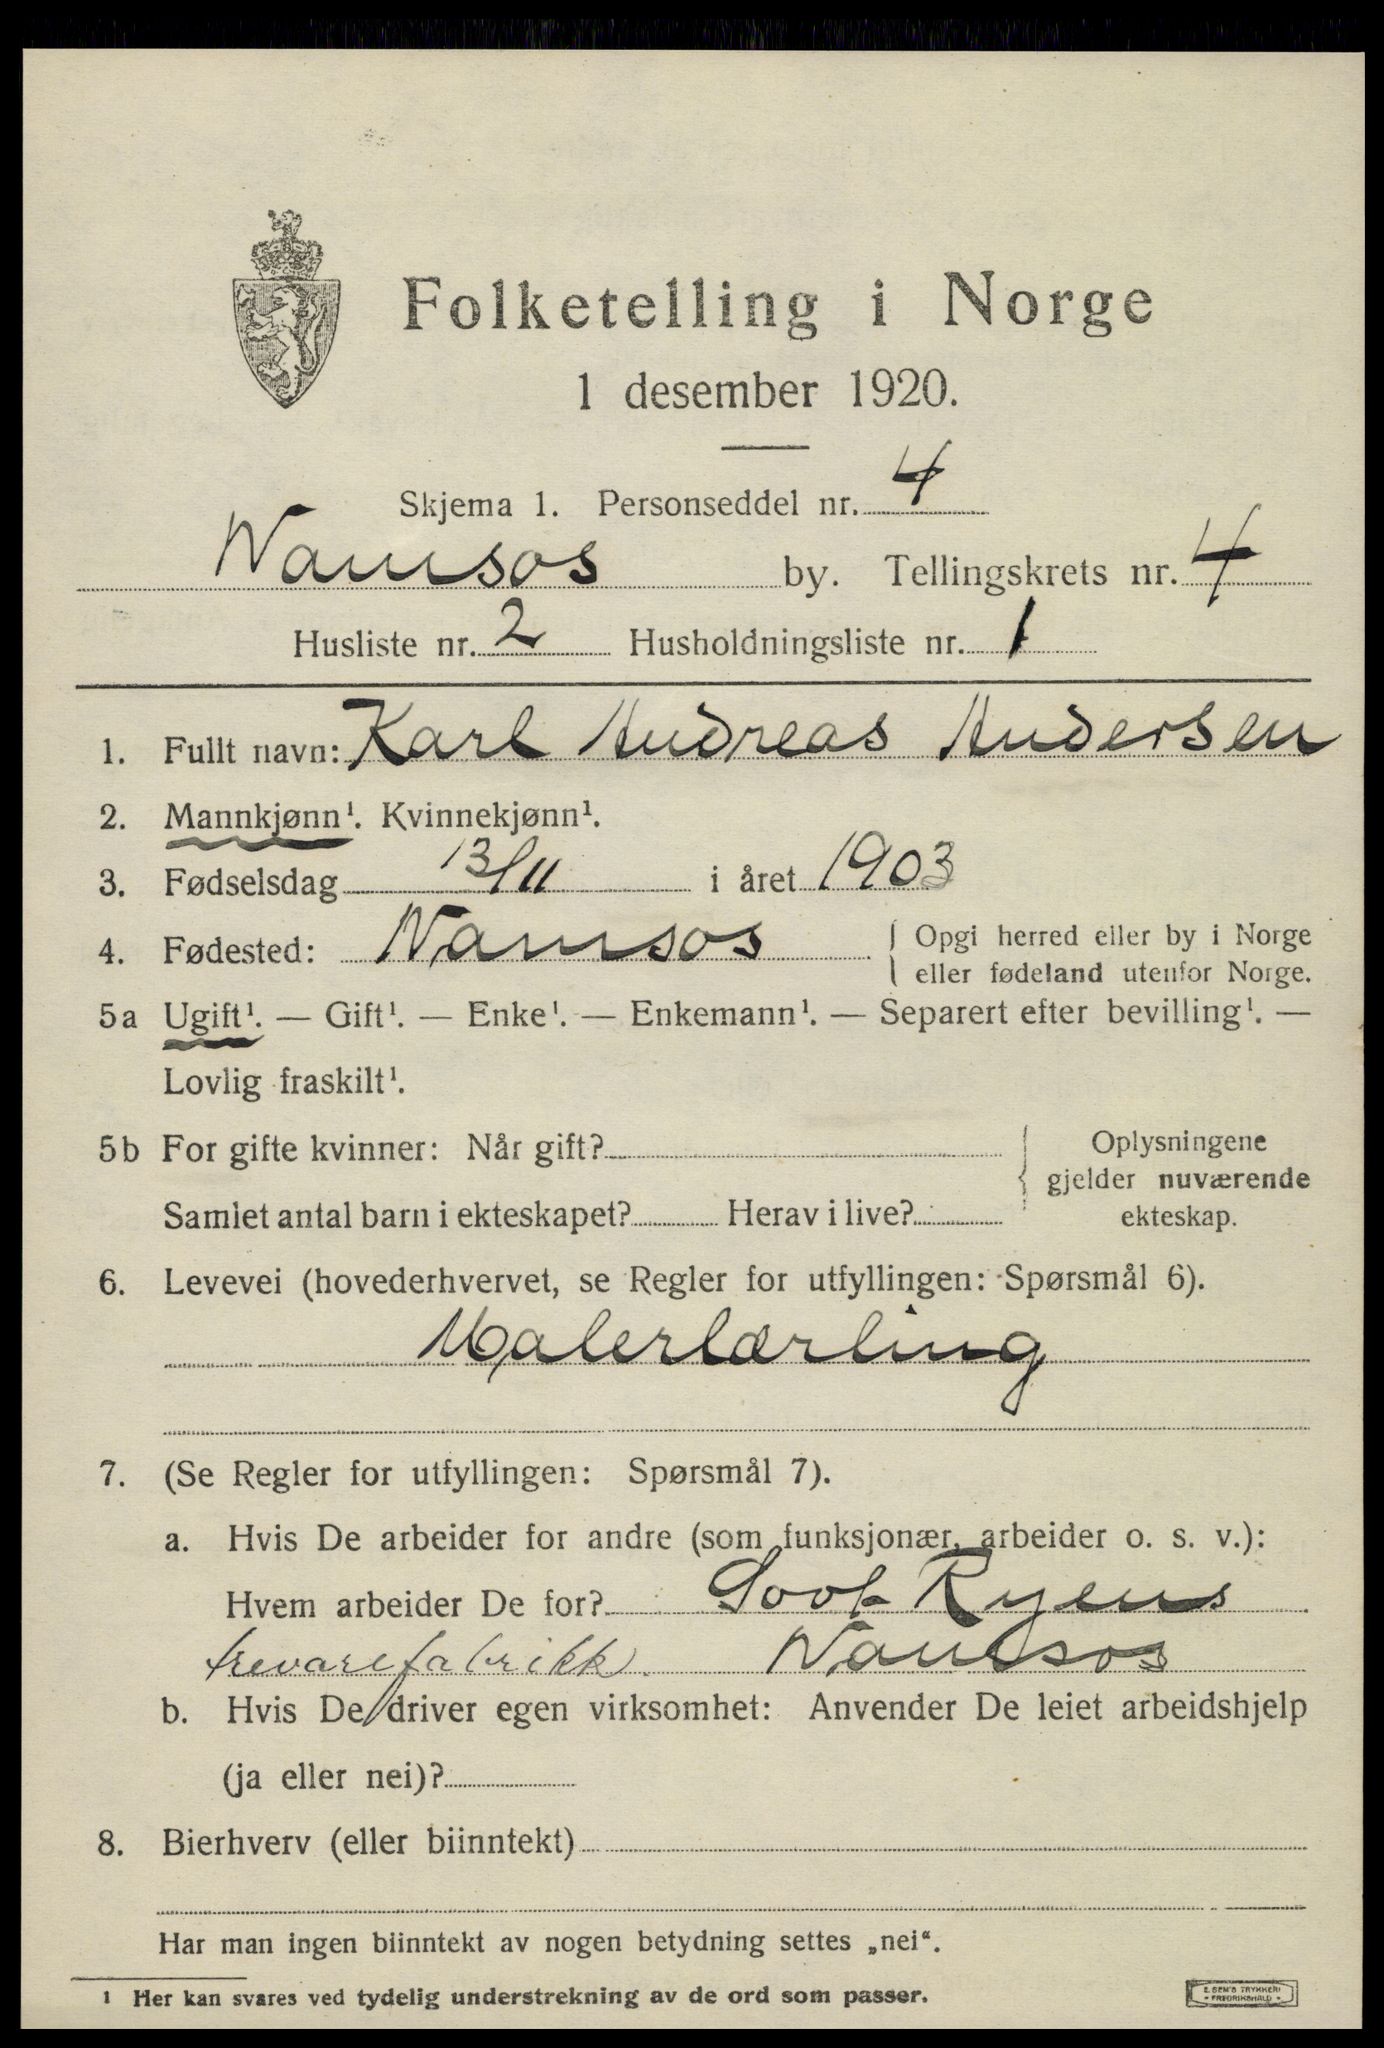 Folketelling i Norge
1 desember 1920.
Skjema 1. Personseddel nr. 4
Namsos by. Tellingskrets nr. 4
Husliste nr. 2 Husholdningsliste nr. 1
1. Fullt navn: Karl Andreas Andersen
2. Mannkjønn¹. Kvinnekjønn¹.
3. Fødselsdag 13/11 i året 1903
4. Fødested: Namsos { Opgi herred eller by i Norge
eller fødeland utenfor Norge.
5a Ugift¹. — Gift¹. — Enke¹. — Enkemann¹. — Separert efter bevilling¹. —
Lovlig fraskilt¹.
5b For gifte kvinner: Når gift? { Oplysningene
gjelder nuværende
Samlet antal barn i ekteskapet? Herav i live? ekteskap.
6. Levevei (hovederhvervet, se Regler for utfyllingen: Spørsmål 6).
Malerlærling
7. (Se Regler for utfyllingen: Spørsmål 7).
a. Hvis De arbeider for andre (som funksjonær, arbeider o. s. v.):
Hvem arbeider De for? Ryens
trevarefabrikk. Namsos
b. Hvis De driver egen virksomhet: Anvender De leiet arbeidshjelp
(ja eller nei)?
8. Bierhverv (eller biinntekt)
Har man ingen biinntekt av nogen betydning settes „nei“.
1 Her kan svares ved tydelig understrekning av de ord som passer.
E. SEM'S TRYKKERI
• FREDRIKSHALD •